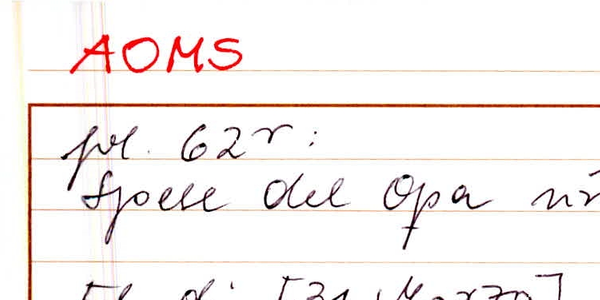 AOMS
fol. 62r:
Spese del Opa
di [31 Marzo]